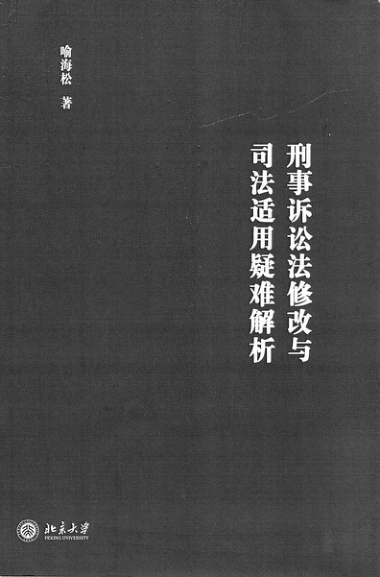 喻海松 著
刑事诉讼法修改与
司法适用疑难解析
北京大学
PEKING UNIVERSITY